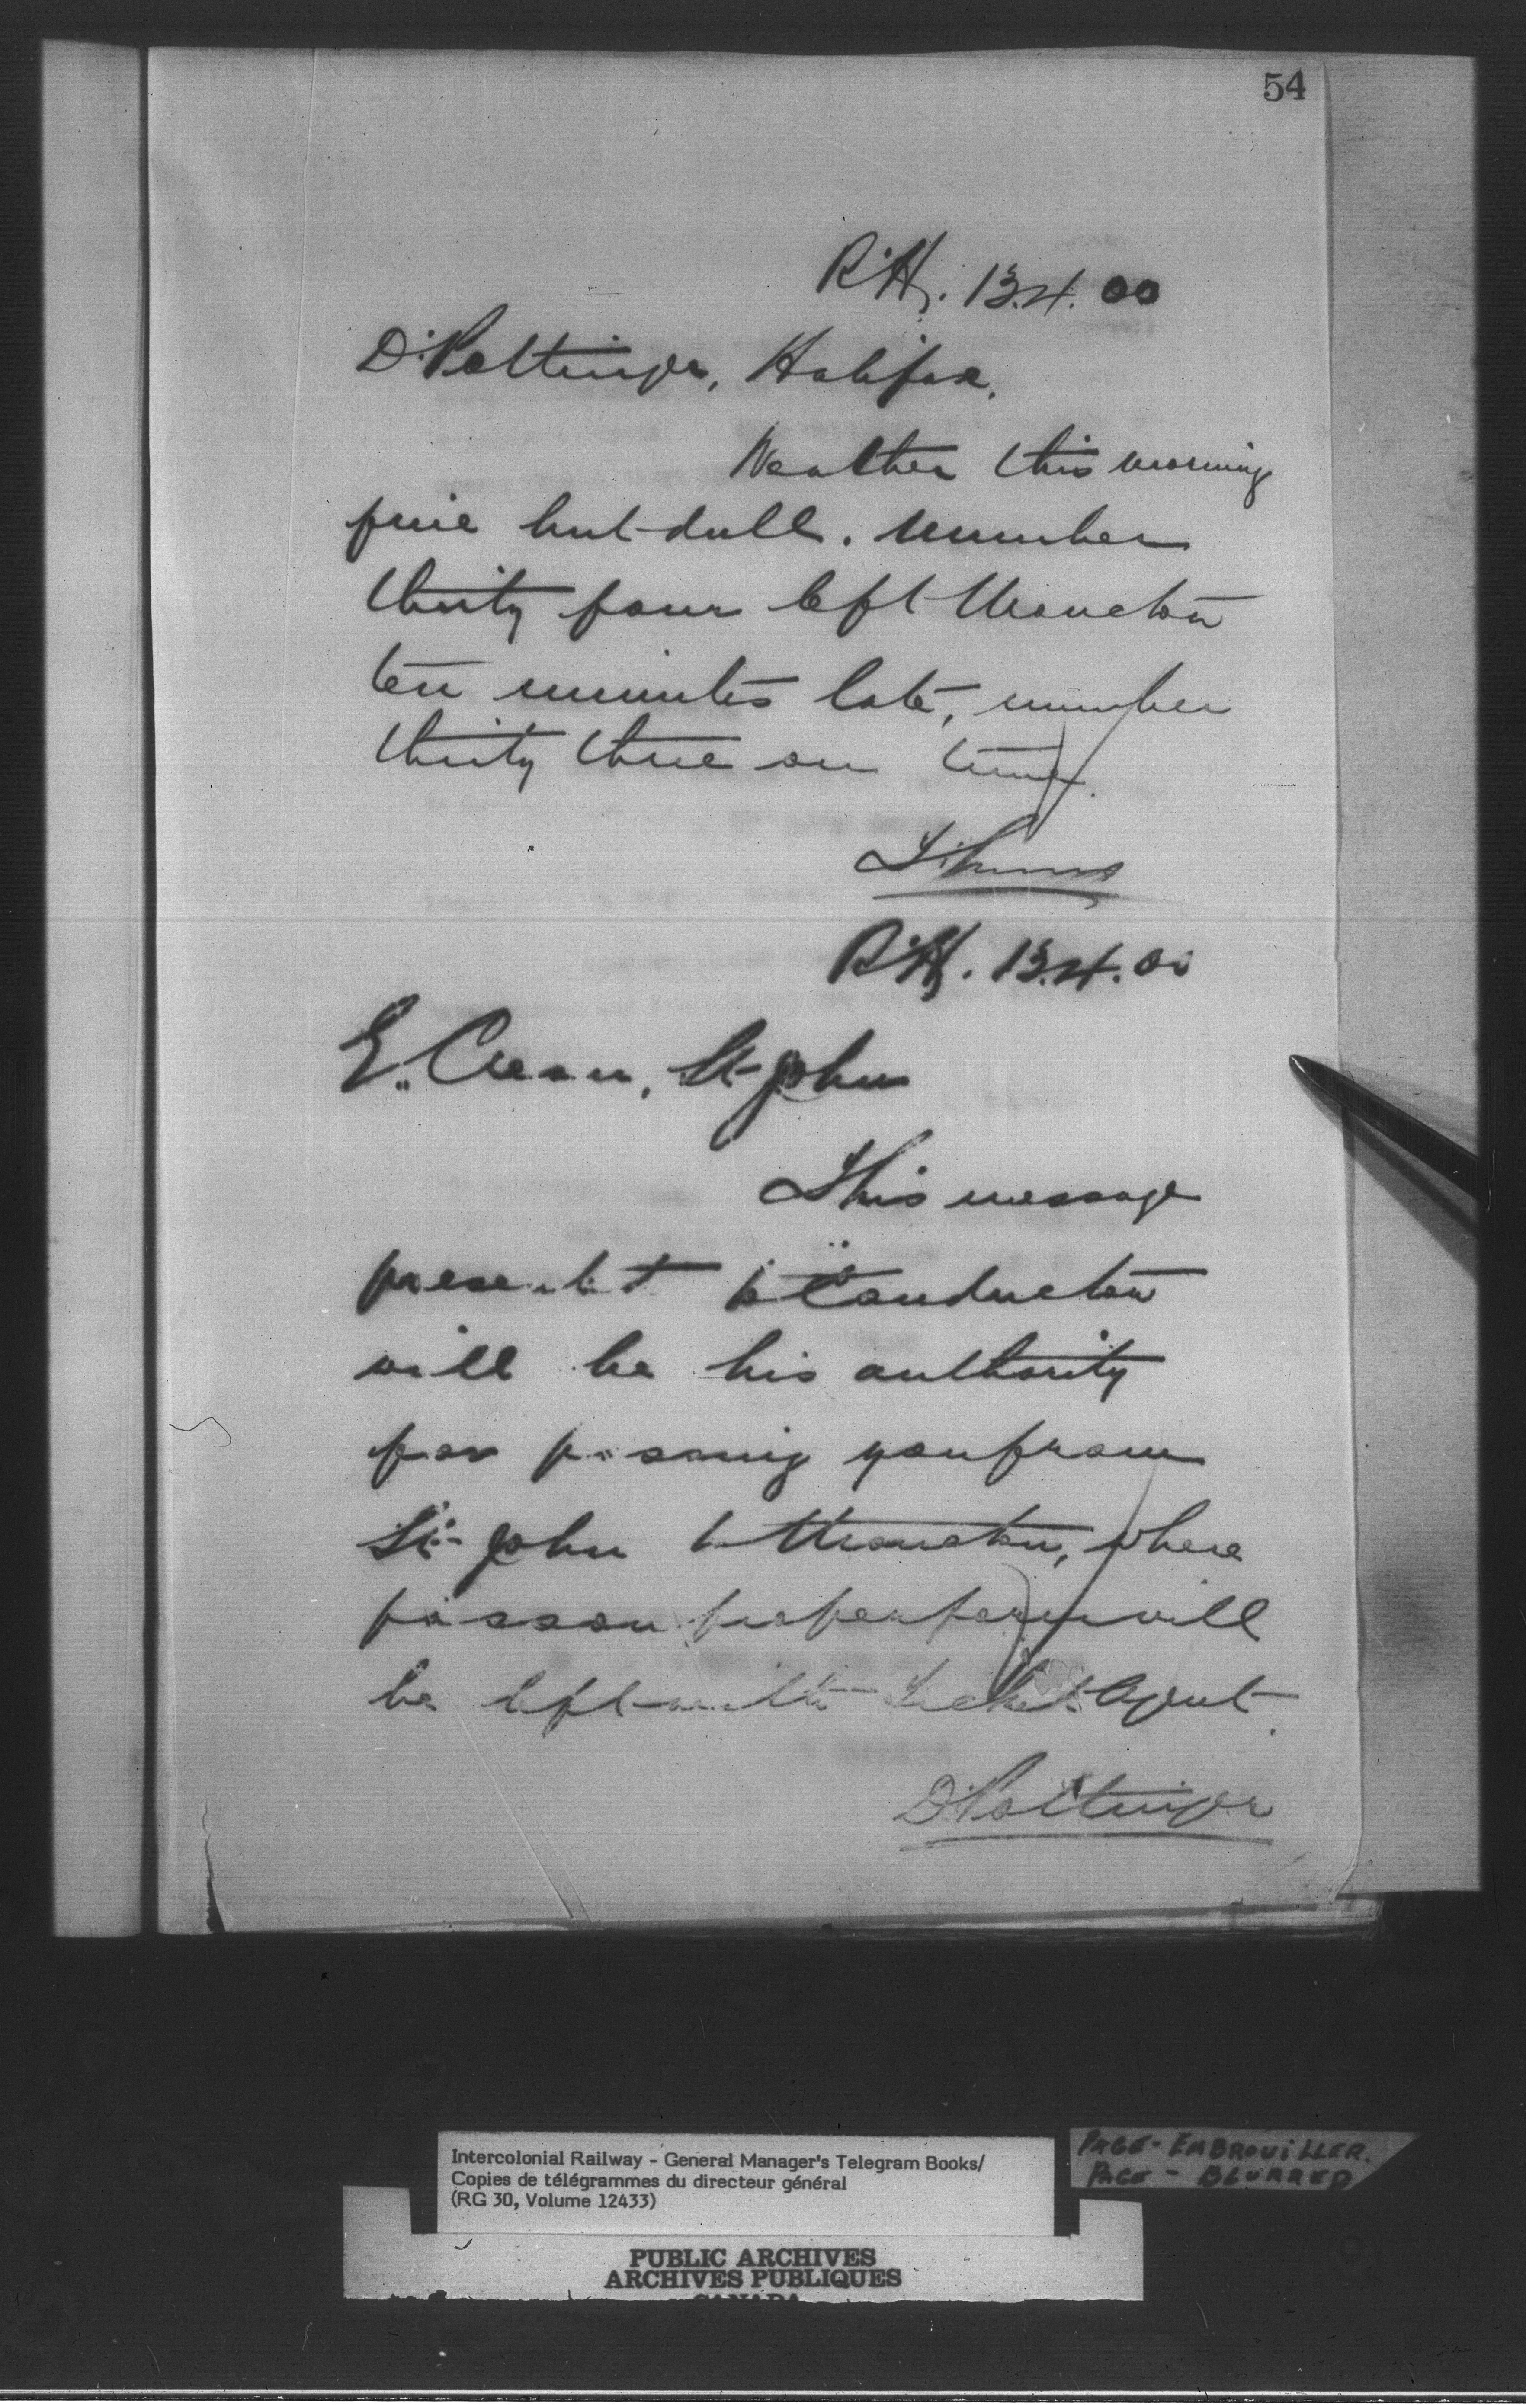 54
R.H. 13.4.00
D. Pottinger, Halifax.
Weather this morning
fine but dull. Number
thirty four left Moncton
ten minutes late, number
thirty three on time.
R.H. 13.4.00
E. Crean, St John
This message
present to Conductor
will be his authority
for passing you from
St. John to Moncton, where
pass on proper form will
be left with Ticket Agent.
D. Pottinger
Intercolonial Railway - General Manager's Telegram Books/
Copies de télégrammes du directeur général
(RG 30, Volume 12433)
PAGE - EMBROUILLER.
PAGE - BLURRED
PUBLIC ARCHIVES
ARCHIVES PUBLIQUES
CANADA